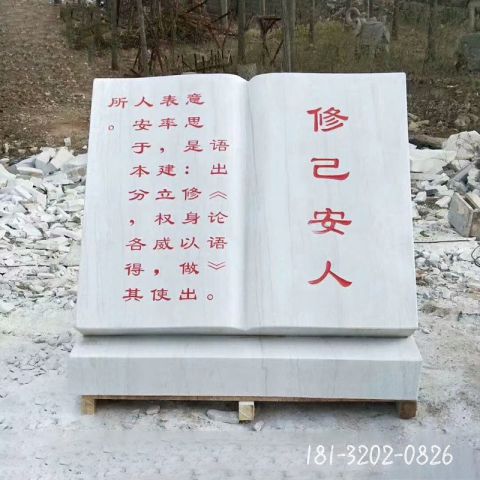 修己安人
语出《论语》。
意思是：修身以做出
表率，建立权威，使
人安于本分，各得其
所。
181-3202-0826